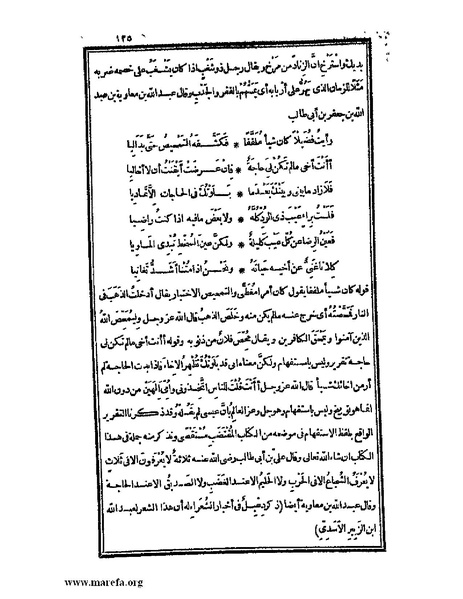 ١٢٥
بديك واسترخ انّ الزناد من مرخ ويقال رجل ذو شغب اذا كان يتشغب على خصمه ضربه
مثلا للزمان الذى يهرّ على أربابه أى يعمهم بالفقر والجدب وقال عبد الله بن معاوية بن عبد
الله بن جعفر بن أبى طالب
رأيت فضيلا كان شيأ ملففا * فكشفه التمحيص حتى بداليا
أأنت أخى مالم تكن لى حاجة * فان عرضت أيقنت أن لا أخاليا
فلا زاد ما بينى وبينك بعدما * بلوتك فى الحاجات الا تماديا
فلست براء عيب ذى الود كله * ولا بعض ما فيه اذا كنت راضيا
فعين الرضا عن كل عيب كليلة * ولكن عين السخط تبدى المساويا
كلانا غنى عن أخيه حياته * ونحن اذا متنا أشد تغانيا
قوله كان شيأ ملففا يقول كان أمرا مغطى والتمحيص الاختبار يقال أدخلت الذهب فى
النار فمحصته أى خرج عنه مالم يكن منه وخلص الذهب قال الله عز وجل وليمحص الله
الذين آمنوا ويمحق الكافرين ويقال محص فلان من ذنوبه وقوله أأنت أخى مالم تكن لى
حاجة تقرير وليس باستفهام ولكن معناه انى قد بلوتك تظهر الاخاء فاذا بدت الحاجة لم
أر من اخائك شيأ قال الله عز وجل أأنت قلت للناس اتخذونى وأمى الهين من دون الله
انما هو توبيخ وليس باستفهام وهو جل وعز العالم بأن عيسى لم يقله وقد ذكرنا التقرير
الواقع بلفظ الاستفهام فى موضعه من الكتاب المقتضب مستقصى ونذكر منه جملة فى هذا
الكتاب ان شاء الله تعالى وقال على بن أبى طالب رضى الله عنه ثلاثة لا يعرفون الا فى ثلاث
لا يعرف الشجاع الا فى الحرب ولا الحليم الا عند الغضب ولا الصديق الا عند الحاجة
وقال عبد الله بن معاوية أيضا (ذكر دعبل فى أخبار الشعراء له أن هذا الشعر لعبد الله
ابن الزبير الاسدى)
www.marefa.org